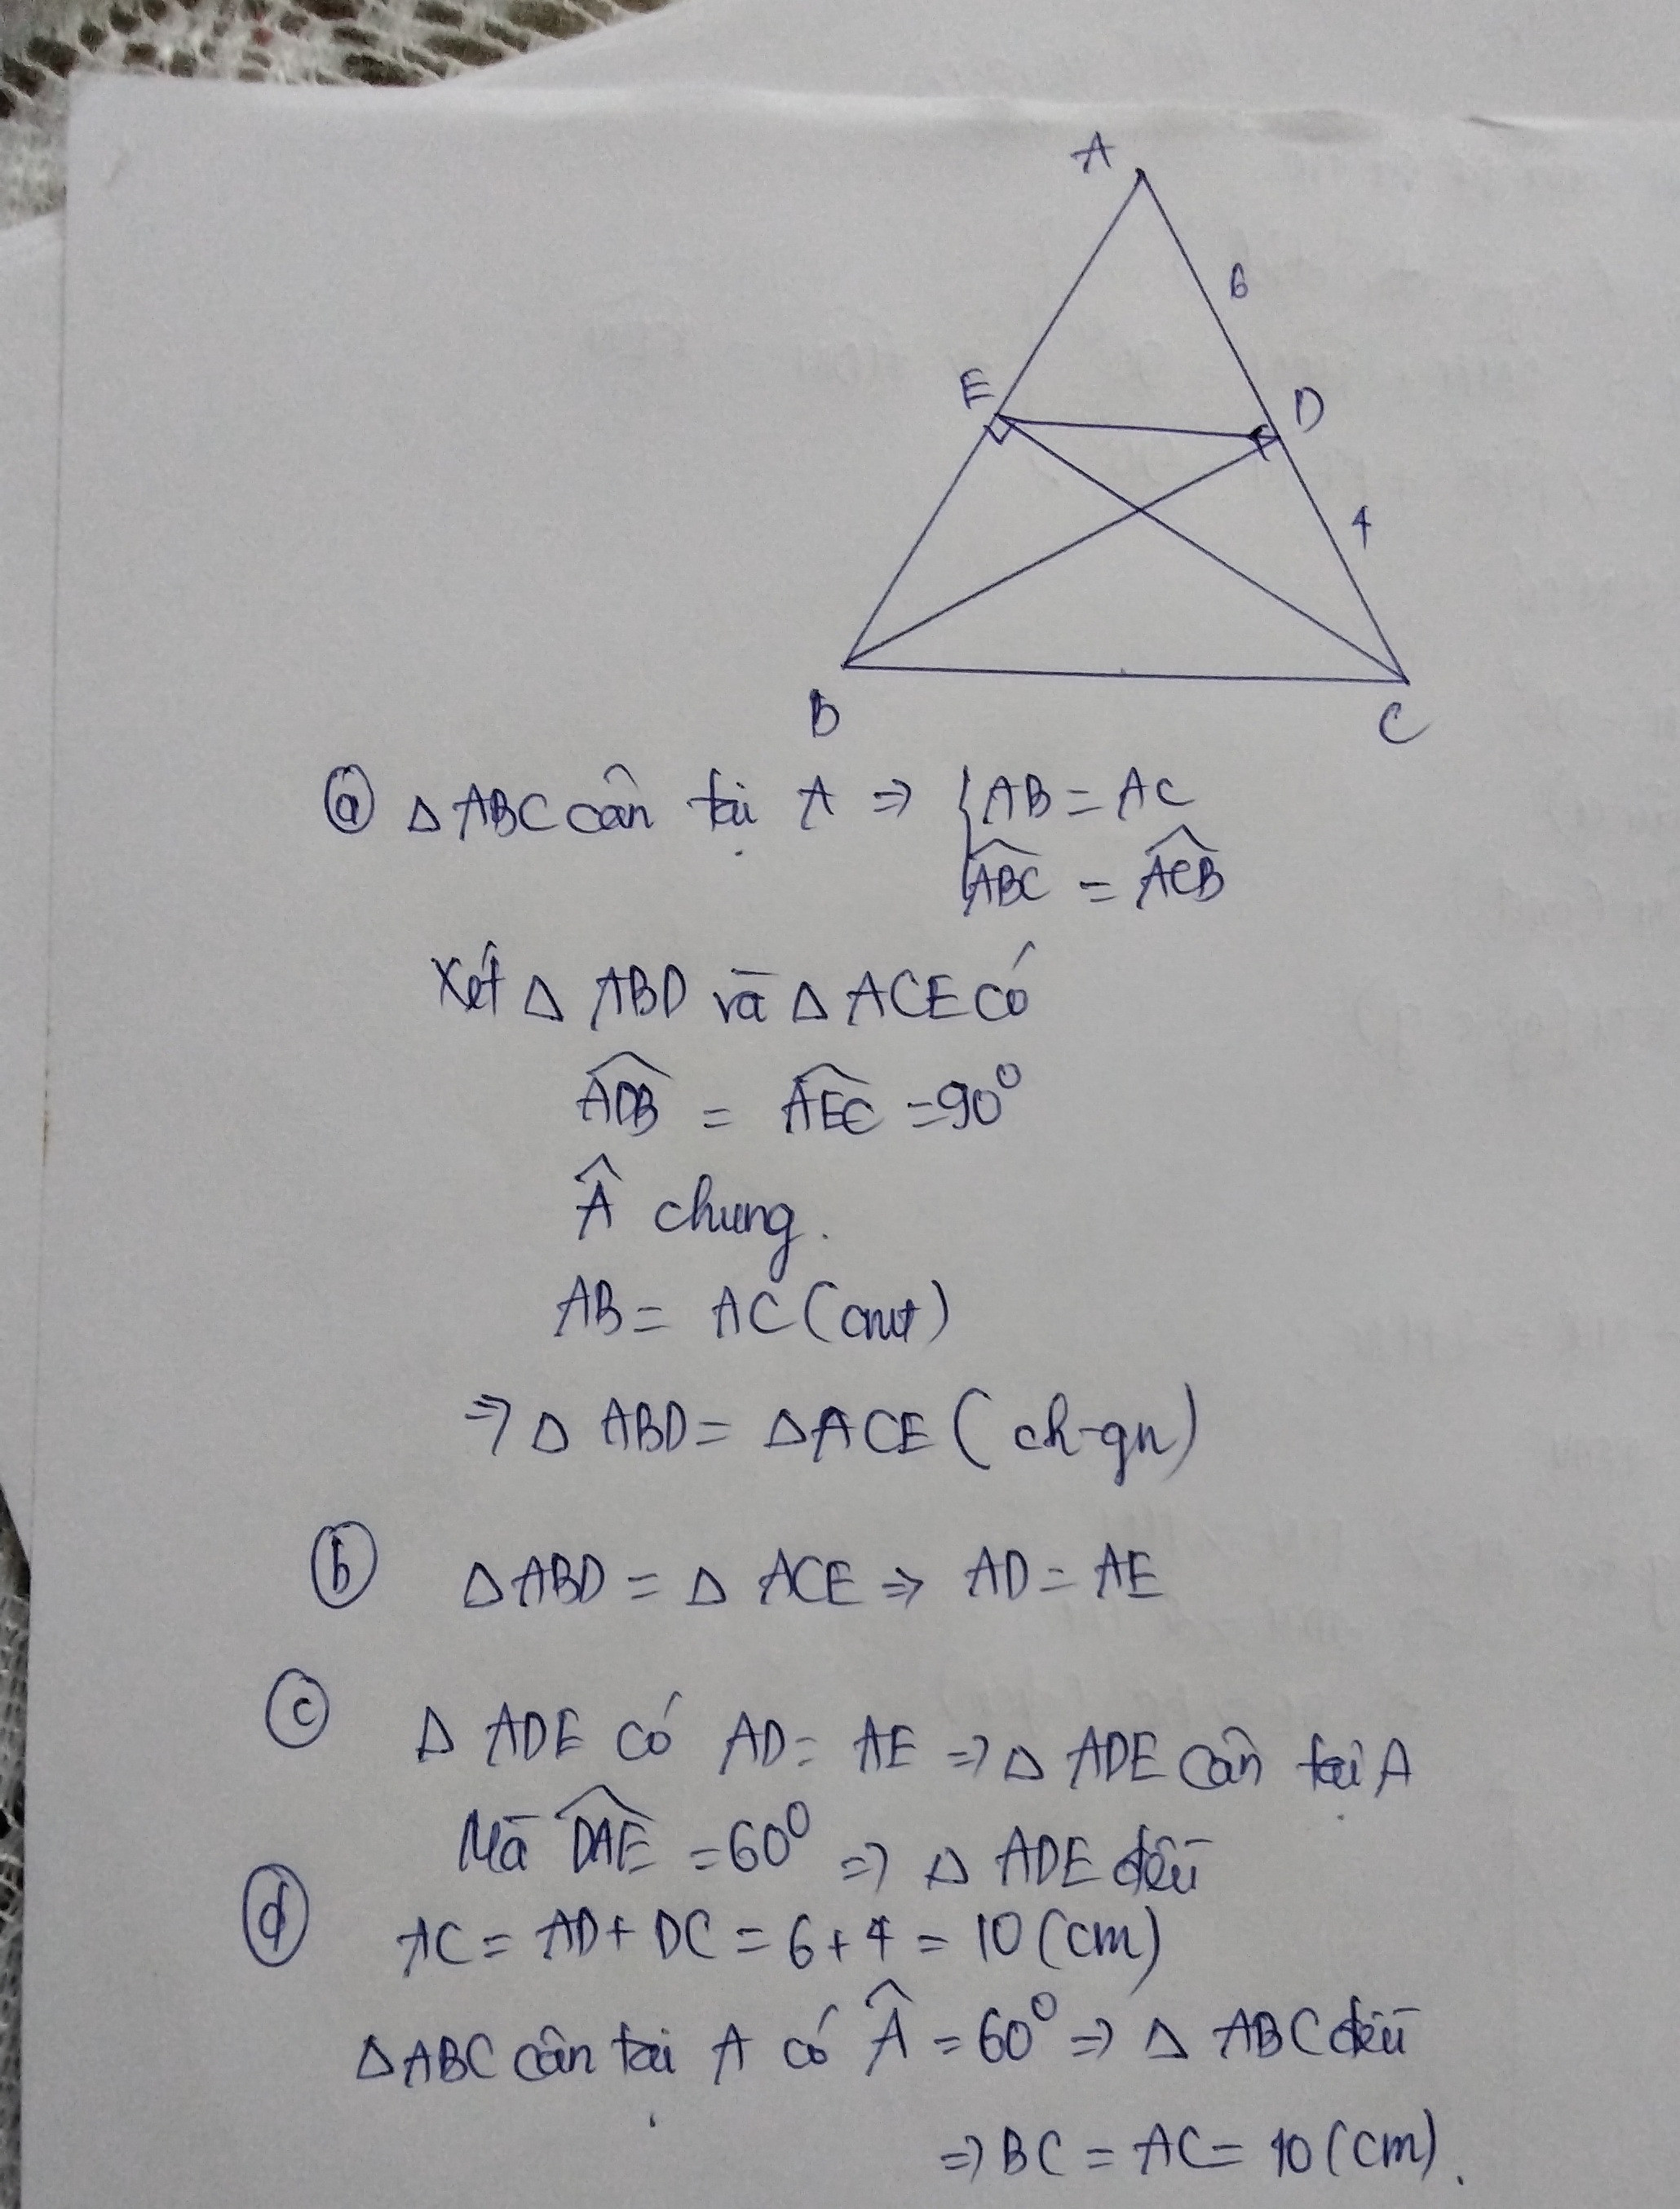 A
6
E
D
4
B
C
ⓐ △ABC cân tại A ⇒ { AB = AC
$\widehat{ABC}$ = $\widehat{ACB}$
Xét △ ABD và △ ACE có
$\widehat{ADB}$ = $\widehat{AEC}$ = 90⁰
$\widehat{A}$ chung.
AB = AC (cmt)
⇒ △ ABD = △ACE (ch-gn)
ⓑ △ABD = △ ACE ⇒ AD = AE
ⓒ △ ADE có AD = AE ⇒ △ ADE cân tại A
Mà $\widehat{DAE}$ = 60⁰ ⇒ △ ADE đều
ⓓ AC = AD + DC = 6 + 4 = 10 (cm)
△ABC cân tại A có $\widehat{A}$ = 60⁰ ⇒ △ ABC đều
⇒ BC = AC = 10 (cm).